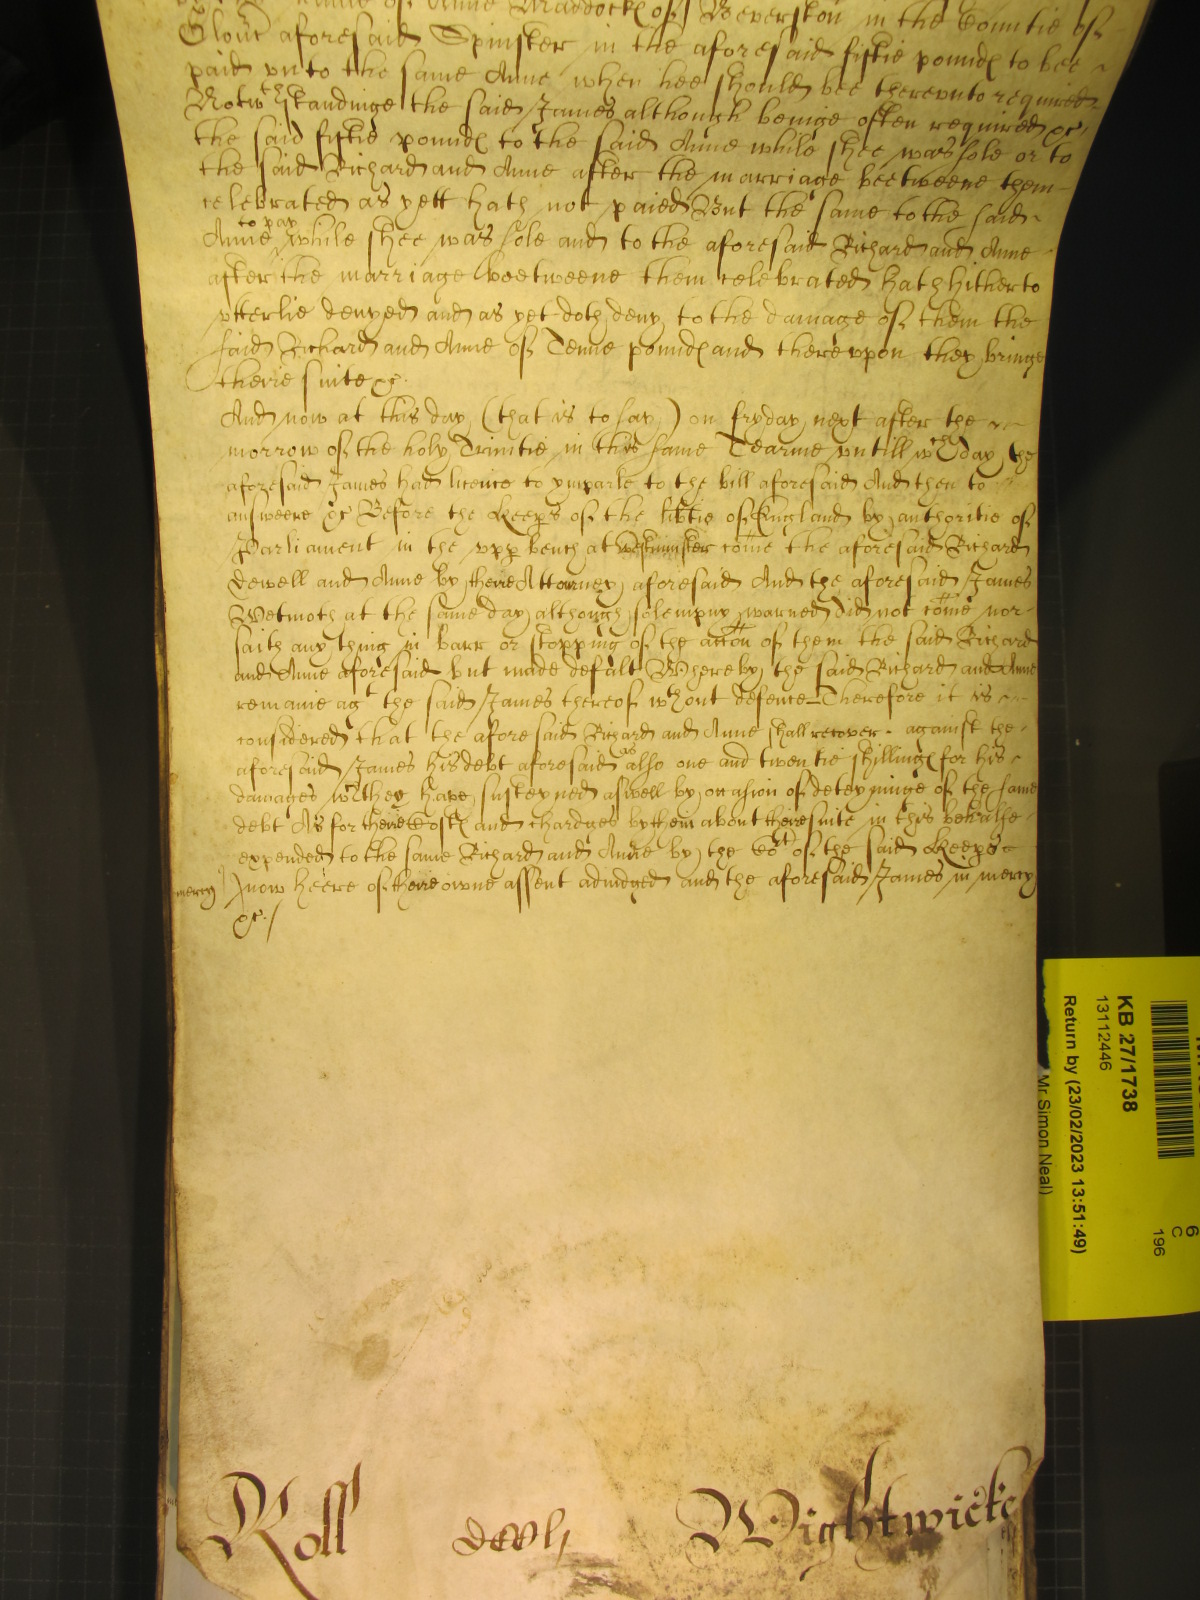 name of Anne Maddock℮ of Beverston in the Countie of
Glouc̃ aforesaid Spinster in the aforesaid fiftie pound℮ to bee
paid vnto the same Anne when hee should bee therevnto required
Notwth standinge the said James although beinge often required &c
the said fiftie pound℮ to the said Anne while shee was sole or to
the said Richard and Anne after the marriage beetweene them
celebrated as yett hath not paied But the same to the said
to pay
Anne while shee was sole and to the aforesaid Richard and Anne
after the marriage beetweene them celebrated hath hitherto
vtterlie denyed and as yet doth deny to the damage of them the
said Richard and Anne of Tenne pound℮ and therevpon they bringe
theire suite &c.
And now at this day (that is to say) on fryday next after the
morrow of the holy Trinitie in this same Tearme vntill wch day the
aforesaid James had licence to ymparle to the bill aforesaid And then to
answeere &c Before the Keeps of the libtie of England by authoritie of
Parliament in the vpp bench at Westminster come the aforesaid Richard
Dewell and Anne by theire Attorney aforesaid And the aforesaid James
Wetmoth at the same day although solempny warned did not come nor
saith any thing in barr or stopping of the accon of them the said Richard
and Anne aforesaid but made defalt Whereby the said Richard and Anne
remaine agt the said James thereof wthout defence Therefore it is
considered that the aforesaid Richard and Anne shall recover against the
as
aforesaid James his debt aforesaid also one and twentie shilling℮ for his
damages wch they have susteyned aswell by occasion of deteyninge of the same
debt As for theire Cost℮ and chardges by them about theire suite in this behalfe
expended to the same Richard and Anne by the Cort of the said Keeps
mercy
now heere of theire owne assent adiudged and the aforesaid James in mercy
&c./
Roll
Wightwicke
KB 27/1738
13112446
Return by (23/02/2023 13:51:49)
Mr Simon Neal)
6
C
196